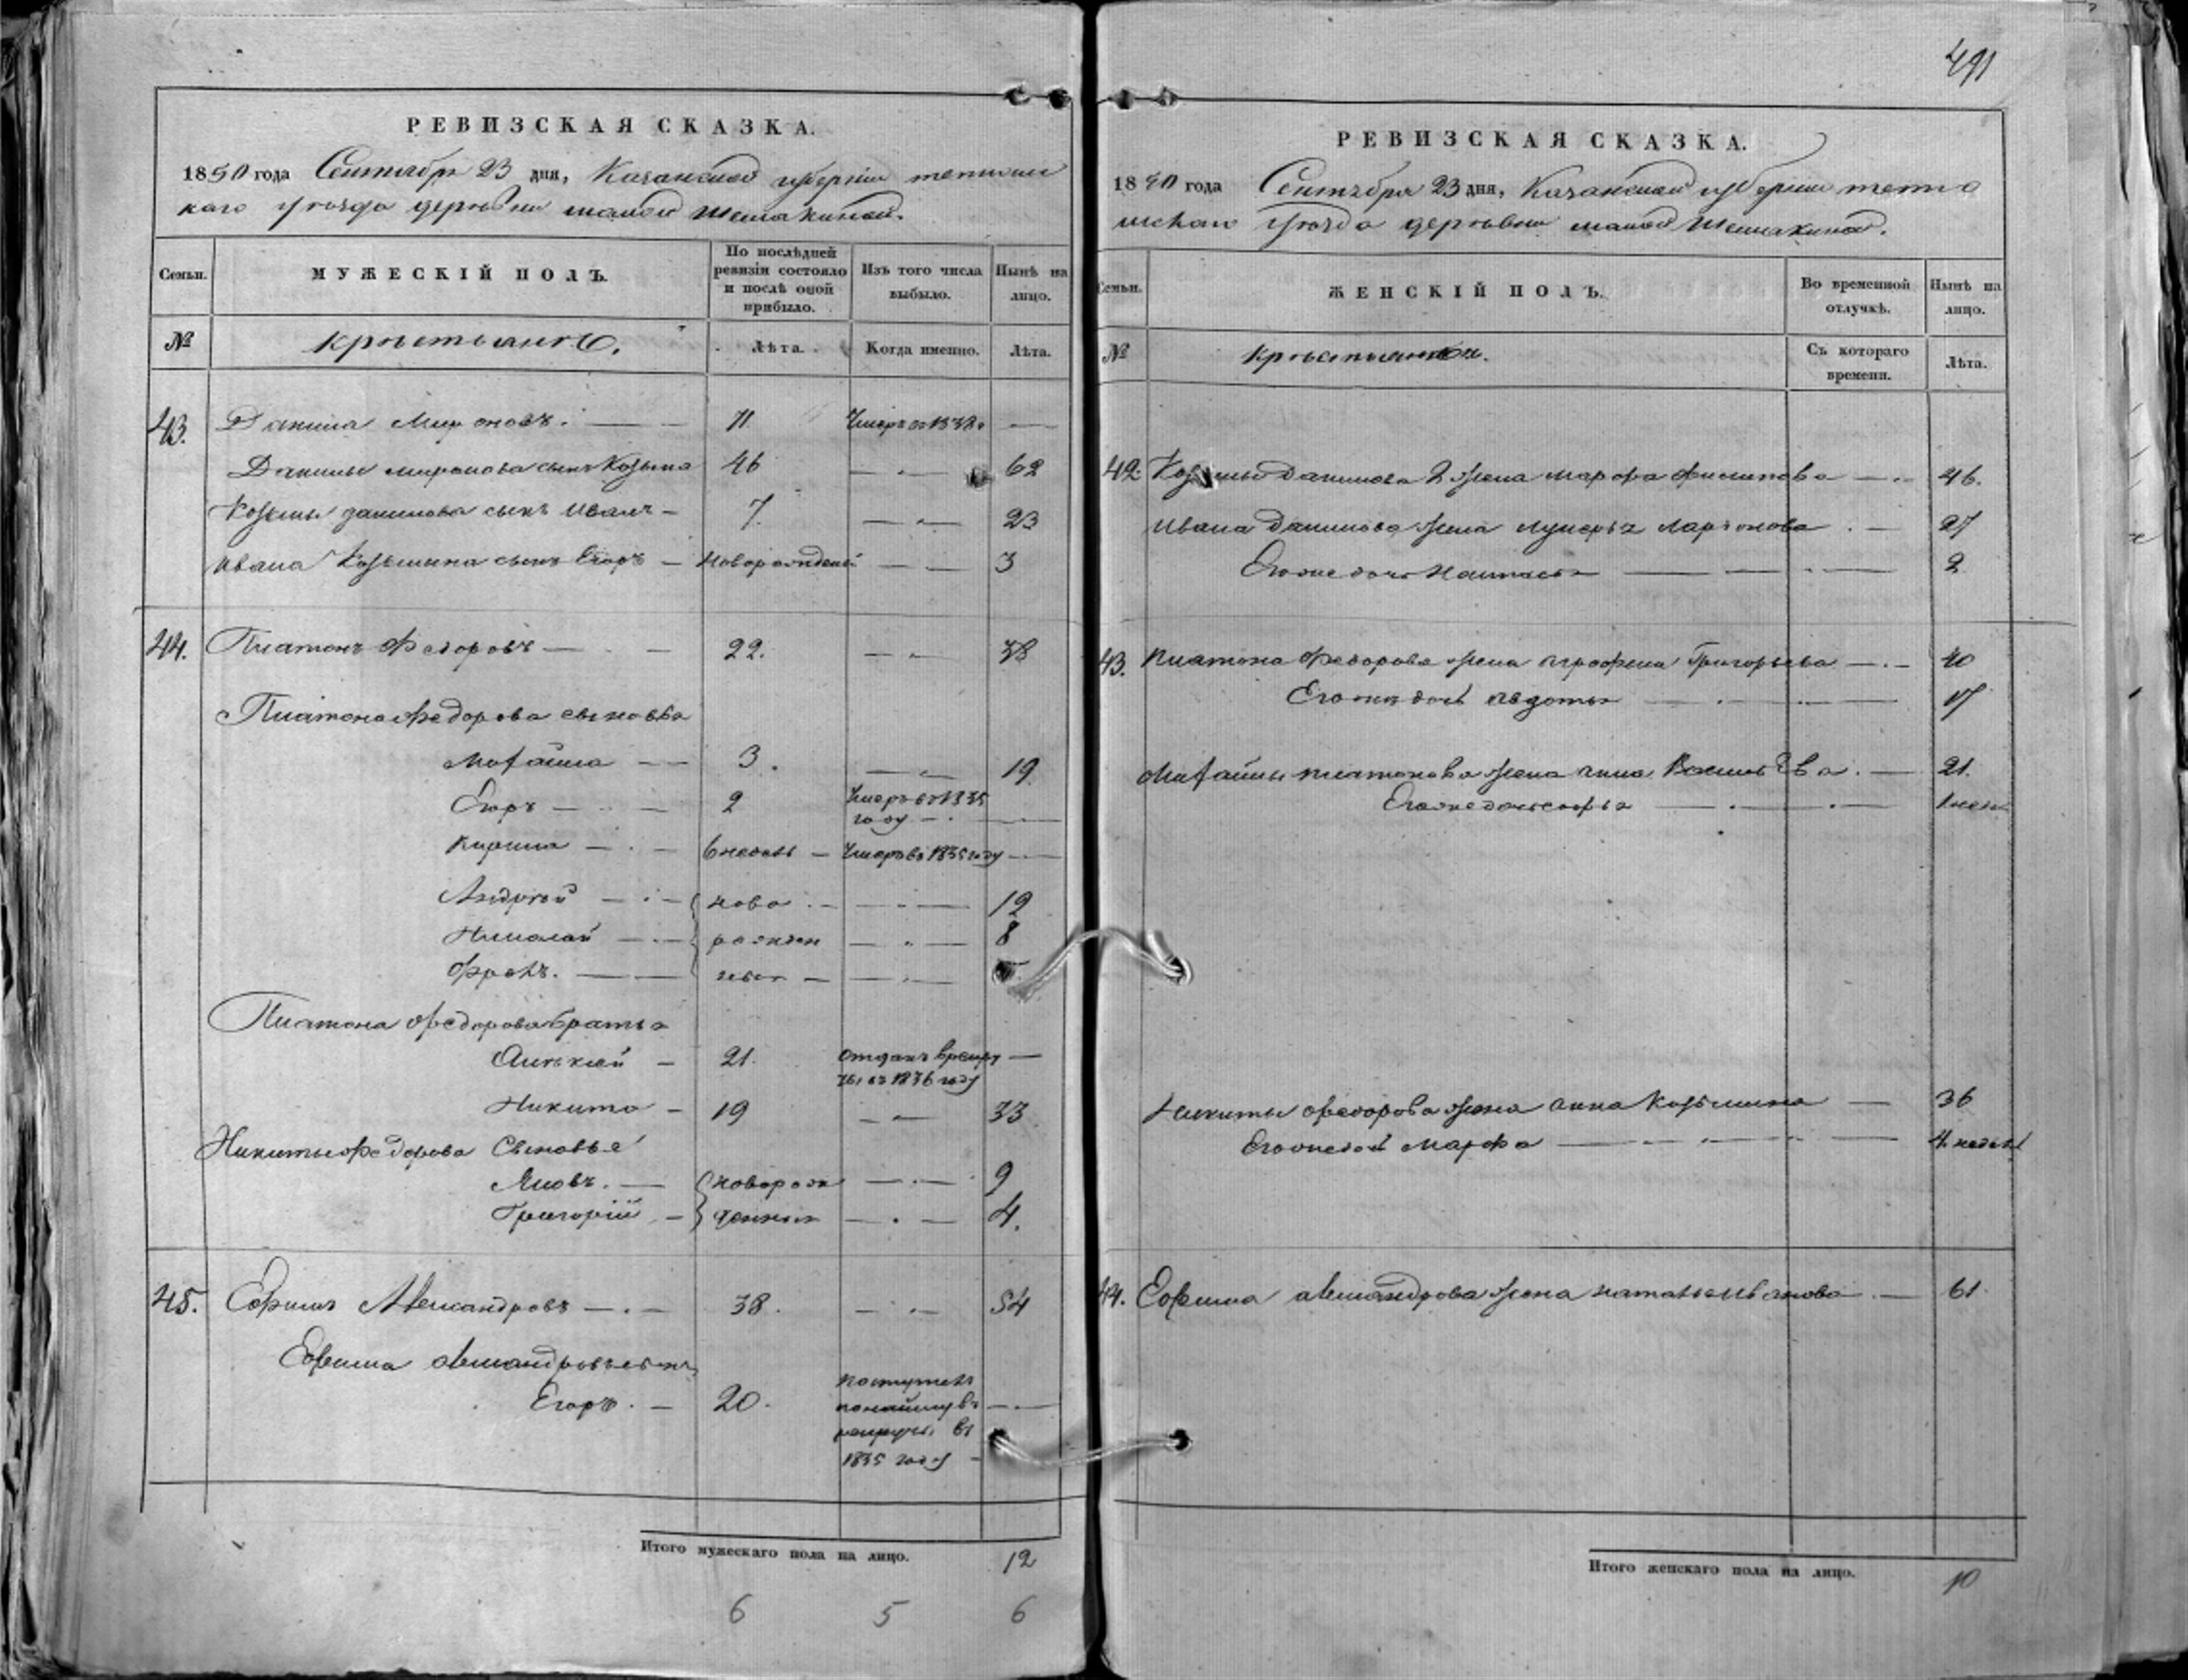 РЕВИЗСКАЯ СКАЗКА.
1850 года Сентября 23 дня, Казанской губернiи тетюш
каго уѣзда деревни малой Шемякиной.
Семьи. МУЖЕСКІЙ ПОЛЪ. По послѣдней ревизіи состояло и послѣ оной прибыло. Изъ того числа выбыло. Нынѣ на лицо.
№ крѣстьянѣ. Лѣта. Когда именно. Лѣта.
43. Данила Мироновъ. — 71 Умеръ въ 1838. —
Данилы миронова сынъ Козьма 46 — 62
Козьмы данилова сынъ иванъ — 7. — 23
ивана Козьмина сынъ Егоръ — новорожденный — 3
44. Платонъ Федоровъ — 22. — 38
Платона федорова сыновья
михайла — 3. — 19.
Егоръ — 2 Умеръ въ 1835
году —
кирила — 6 недель — Умеръ въ 1835 году —
Андрей — ново — 12
Николай — рожден — 8
Фролъ. — ныя —
Платона федорова братья
Алексей — 21. отданъ в рекру
ты въ 1836 году —
Никита — 19 — 33
Никиты федорова Сыновья
Яковъ. — новорож — 9
Григорій — денныя — 4.
45. Ефимъ Александровъ — 38. — 54
Ефима александровъ сынъ
Егоръ. — 20. поступилъ
понайму въ
рекруты въ
1835 году —
Итого мужескаго пола на лицо. 12
6 5 6
491
РЕВИЗСКАЯ СКАЗКА.
1850 года Сентября 23 дня, Казанской губернiи тетю
шскаго уѣзда деревни малой Шемякиной.
Семьи. ЖЕНСКІЙ ПОЛЪ. Во временной отлучкѣ. Нынѣ на лицо.
№ крѣстьянки. Съ котораго времени. Лѣта.
42. Козьмы Данилова 2 жена марфа филипова — 46.
ивана Данилова жена лукерья ларионова — 27
Егоже дочь настасья — 2
43. платона федорова жена аграфена Григорьева — 40
Егоже дочь авдотья — 17
михайлы платонова жена анна Васильева. — 21.
Егоже дочь софья —
Никиты федорова жена анна козьмина — 36
Егоже доч марфа — 4 недели
44. Ефима александрова жена наталья иванова — 61
Итого женскаго пола на лицо. 10